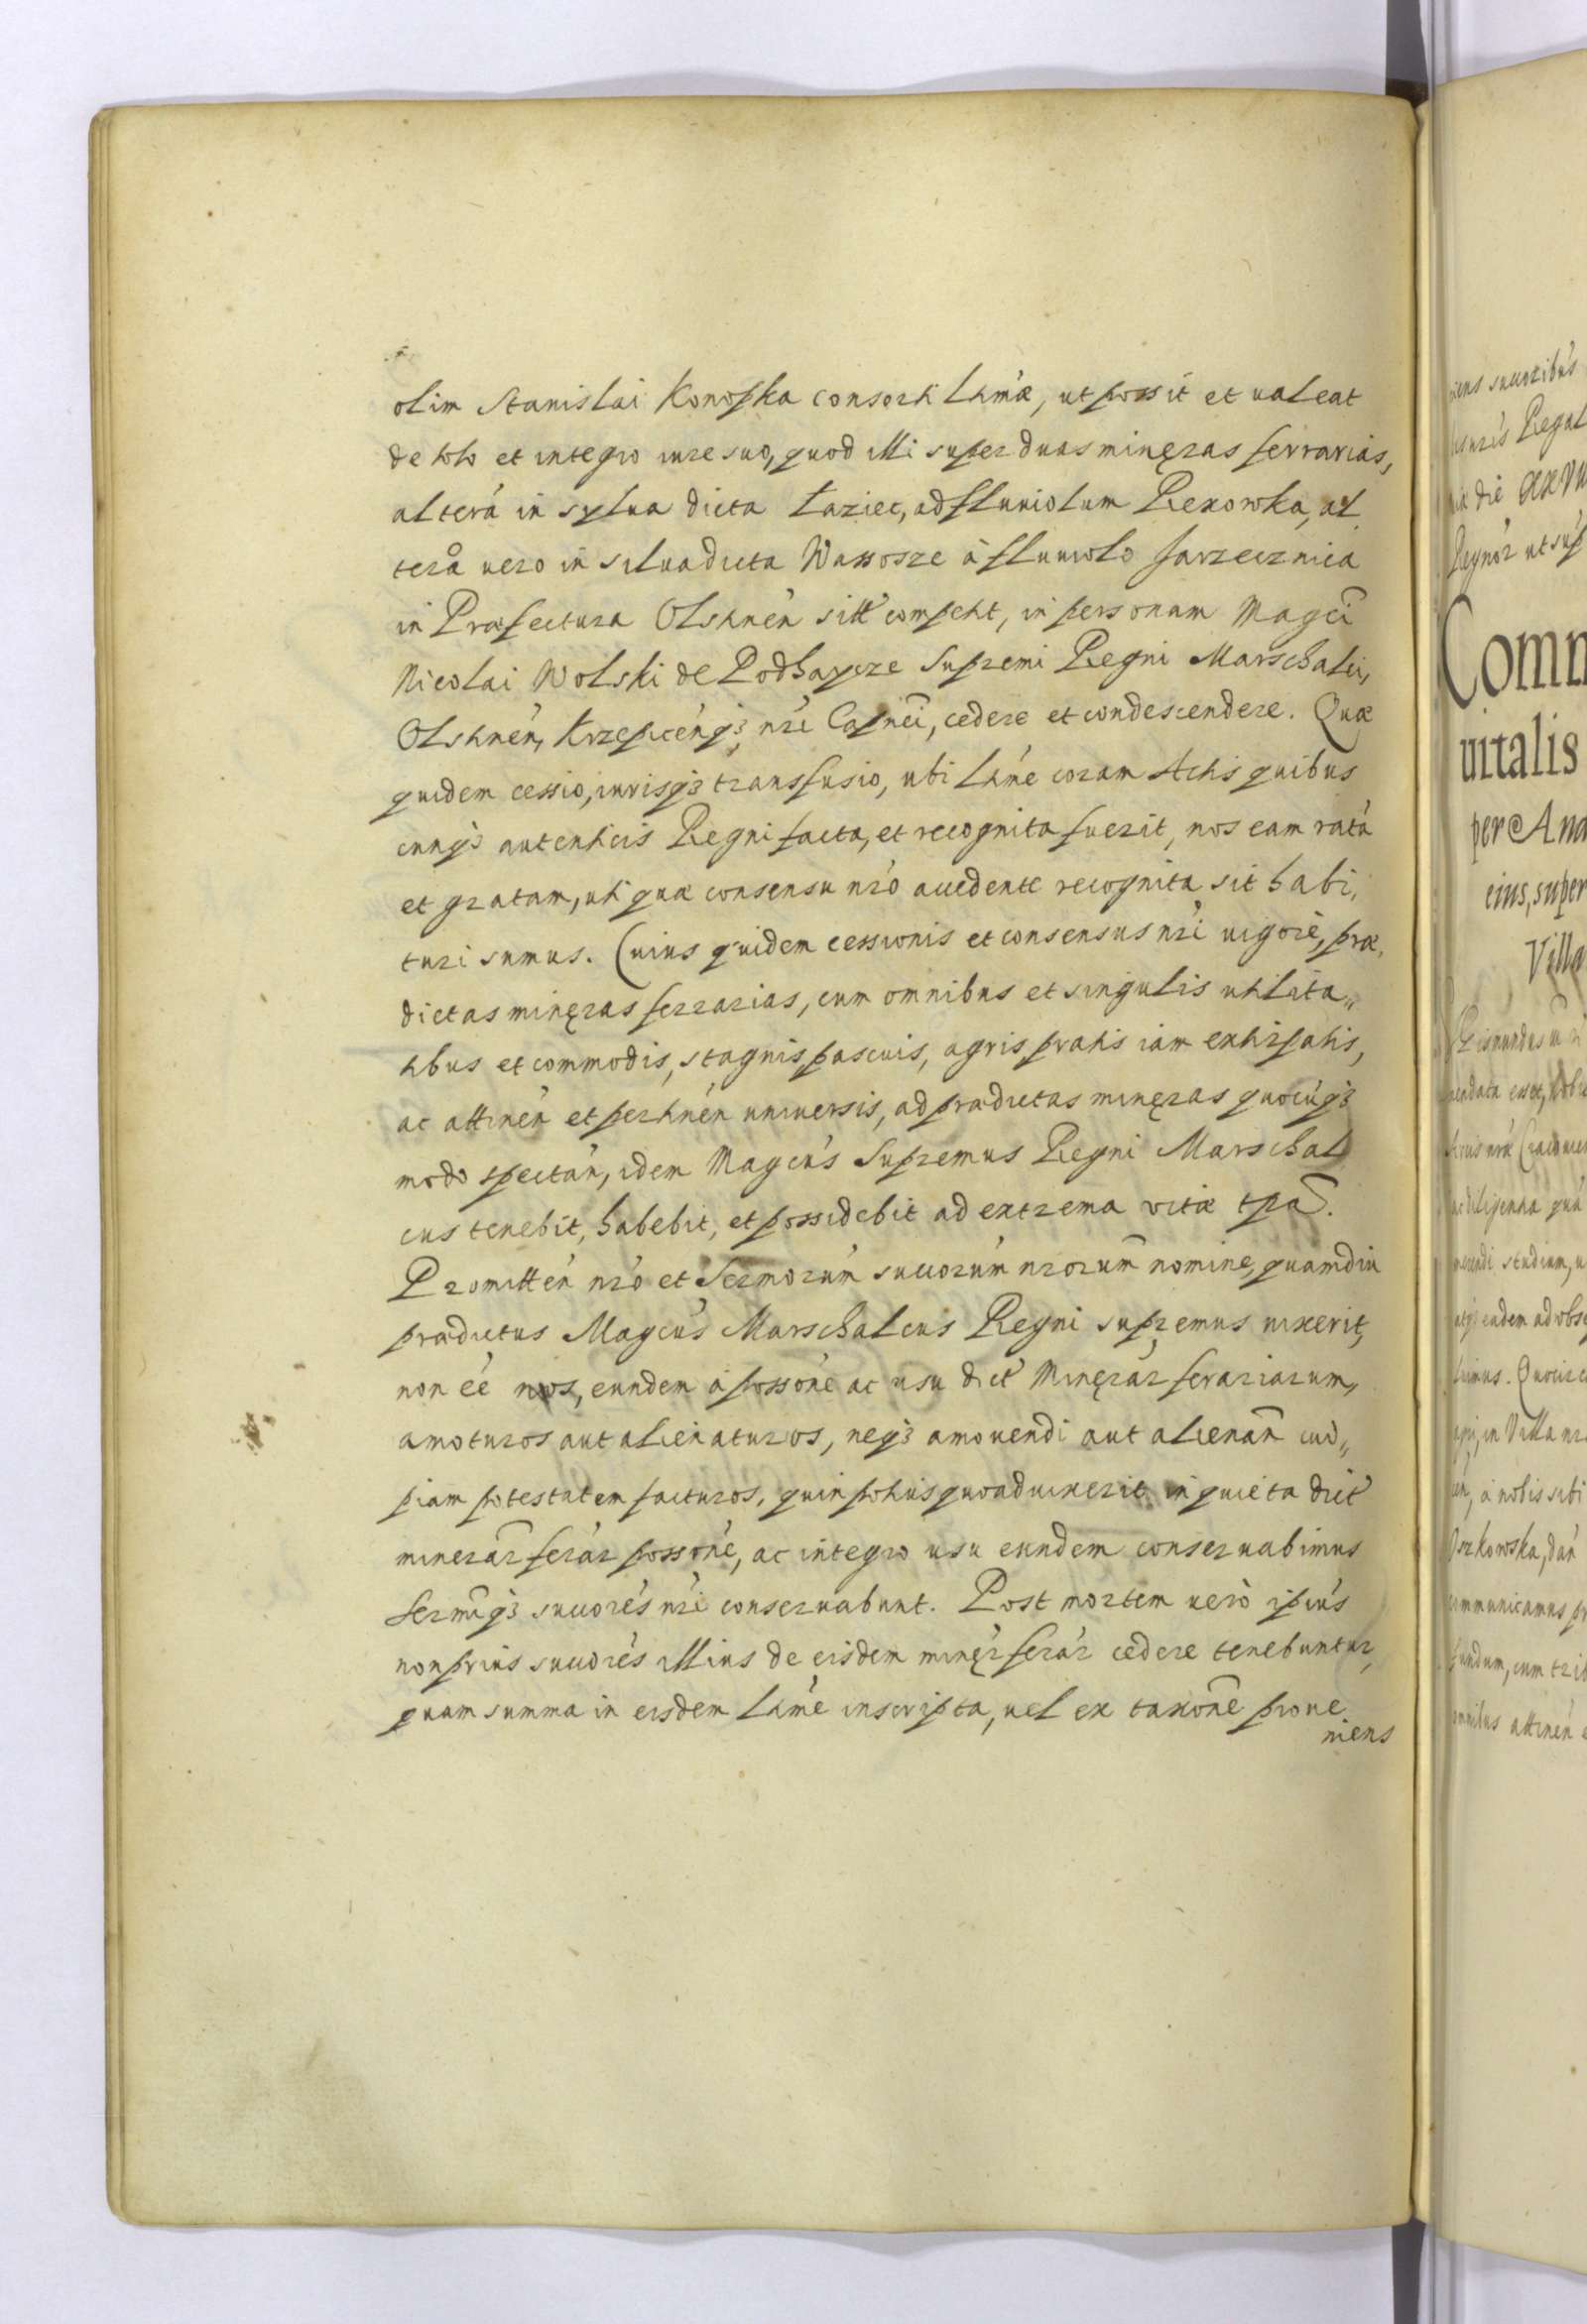 olim Stanislai Konopka consorti Ltimæ, ut possit et ualeat
de toto et integro iure suo, quod illi super duas minęras ferrarias,
alterá in sylua dicta Łaziec, ad fluuiolum Rexowka, al
terå uero in silua dicta Wąssosze à fluuiolo Jarzecznica
in Præfectura Olstinen̄ sitt̄ competit, in personam Magci̅
Nicolai Wolski de Podhaycze Supremi Regni Marschalci,
Olstinen̄, Krzepicen̄q3 nr̄i Capnei̅, cedere et condescendere. Quæ
quidem cessio, iurisq3 transfusio, ubi Ltimè coram Actis quibus
cunq3 autenticis Regni facta, et recognita fuerit, nos eam ratá
et gratam, uti quæ consensu nr̄o accedente recognita sit habi,
turi sumus. Cuius quidem cessionis et consensus nr̄i uigore, præ,
dictas minęras ferrarias, cum omnibus et singulis utilita„
tibus et commodis, stagnis, pascuis, agris, pratis iam extirpatis,
ac attinen̄ et pertinen̄ uniuersis, ad prædictas minęras quocúq3
modo spectan̄, idem Magcus Supremus Regni Marschal
cus tenebit, habebit, et possidebit ad extrema vitæ tpa̅.
Promitten̄ nr̄o et Sermorum̄ succorum̄ nrorum̄ nomine, quamdiu
prædictus Magcus Marschalcus Regni supremus uixerit,
non eé nos, eundem à possone̅ ac usu dict̄ Minęrar̄ ferariarum,
amoturos aut alienaturos, neq3 amouendi aut alienan̄ cui„
piam potestatem facturos, quin potius quoad uixerit in quieta dict̄
minerar̄ ferar̄ possone̅, ac integro usu eundem conseruabimus
Sermiq3 succores̄ nr̄i conseruabunt. Post mortem uerò ipius̄
non prius succores̄ illius de eisdem minęr̄ ferar̄ cedere tenebuntur,
quam summa in eisdem Ltimè inscripta, uel ex taxone̅ proue
niens
Comm
uitalis
per And
eius, super
Villa